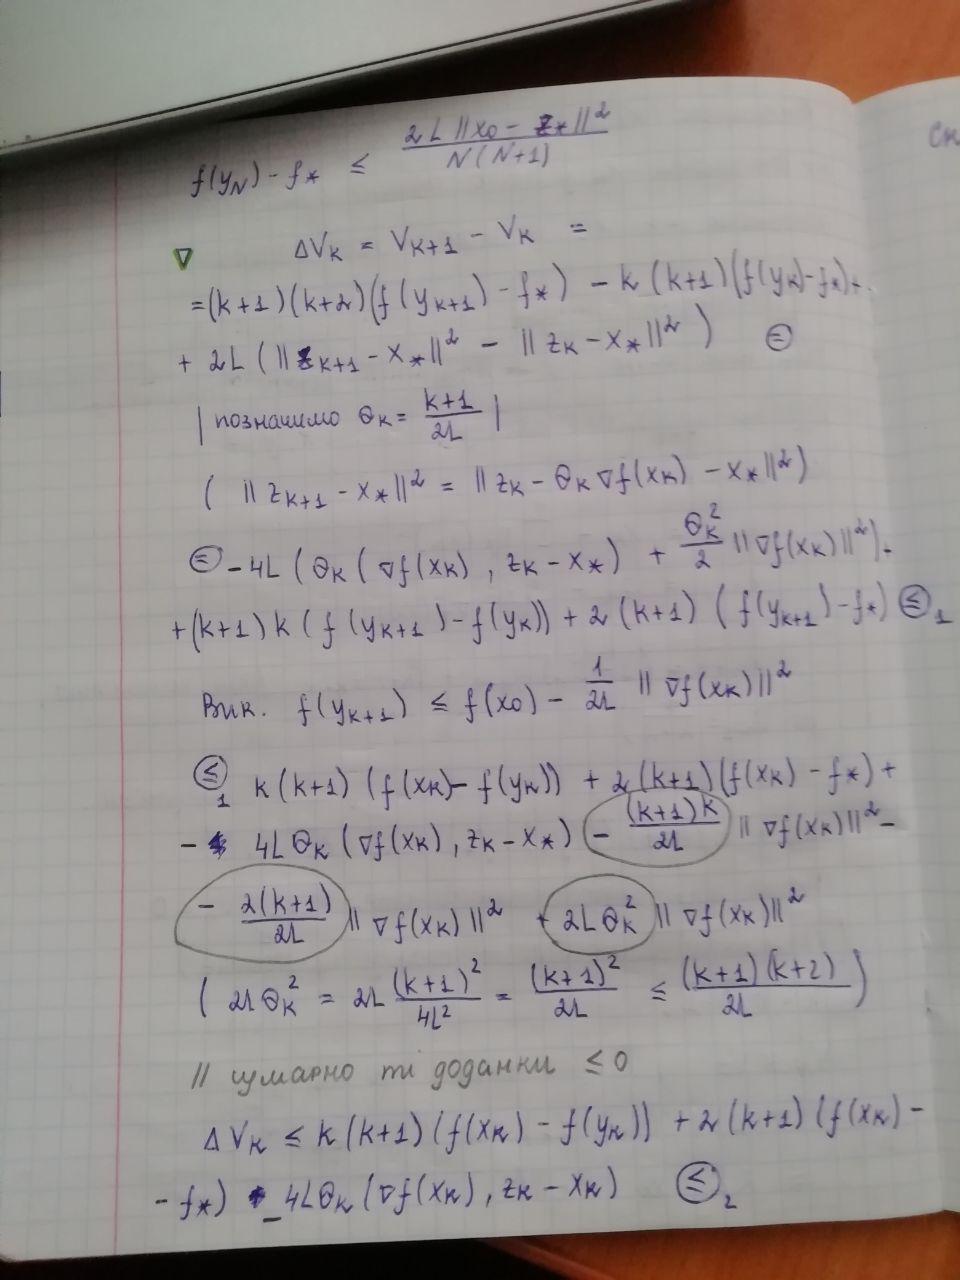 f(y_N) - f* ≤ 2L ||x_0 - z*||² / N(N+1)
∇ ΔV_k = V_{k+1} - V_k =
= (k+1)(k+2)(f(y_{k+1}) - f*) - k(k+1)(f(y_k) - f*) +
+ 2L (||z_{k+1} - x*||² - ||z_k - x*||²) ⊜
| позначимо θ_k = (k+1)/2L |
( ||z_{k+1} - x*||² = ||z_k - θ_k ∇f(x_k) - x*||²)
⊜ -4L (θ_k (∇f(x_k), z_k - x*) + θ_k²/2 ||∇f(x_k)||²) +
+ (k+1)k (f(y_{k+1}) - f(y_k)) + 2(k+1) (f(y_{k+1}) - f*) ≤_1
Вик. f(y_{k+1}) ≤ f(x_0) - 1/2L ||∇f(x_k)||²
≤_1 k(k+1) (f(x_k) - f(y_k)) + 2(k+1)(f(x_k) - f*) +
- 4Lθ_k (∇f(x_k), z_k - x*) - (k+1)k/2L ||∇f(x_k)||² -
- 2(k+1)/2L ||∇f(x_k)||² + 2Lθ_k² ||∇f(x_k)||²
( 2Lθ_k² = 2L (k+1)²/4L² = (k+1)²/2L ≤ (k+1)(k+2)/2L )
// сумарно ті доданки ≤ 0
ΔV_k ≤ k(k+1)(f(x_k) - f(y_k)) + 2(k+1)(f(x_k) -
- f*) - 4Lθ_k (∇f(x_k), z_k - x_k) ≤_2